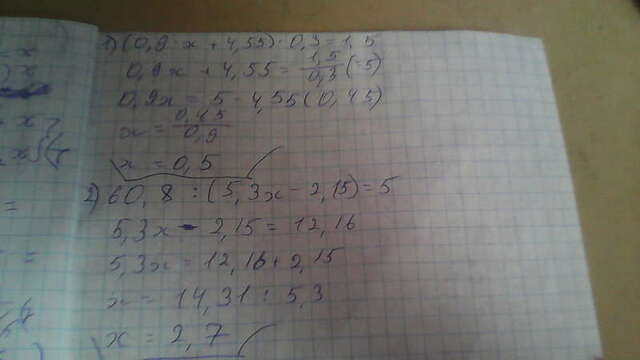 1) (0,9 · x + 4,55) · 0,3 = 1,5
0,9x + 4,55 = 1,5/0,3 (5)
0,9x = 5 - 4,55 (0,45)
x = 0,45/0,9
x = 0,5
2) 60,8 : (5,3x - 2,15) = 5
5,3x - 2,15 = 12,16
5,3x = 12,16 + 2,15
x = 14,31 : 5,3
x = 2,7